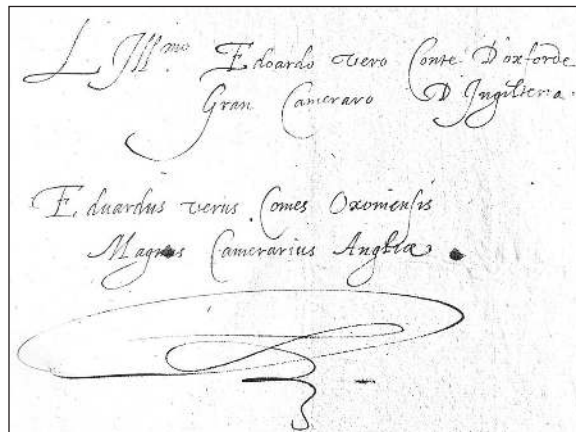 L Ill.mo Edoardo vero Conte D'oxforde
Gran Cameraro D Ingilterra.
Eduardus verus Comes Oxoniensis
Magnus Camerarius Angliæ